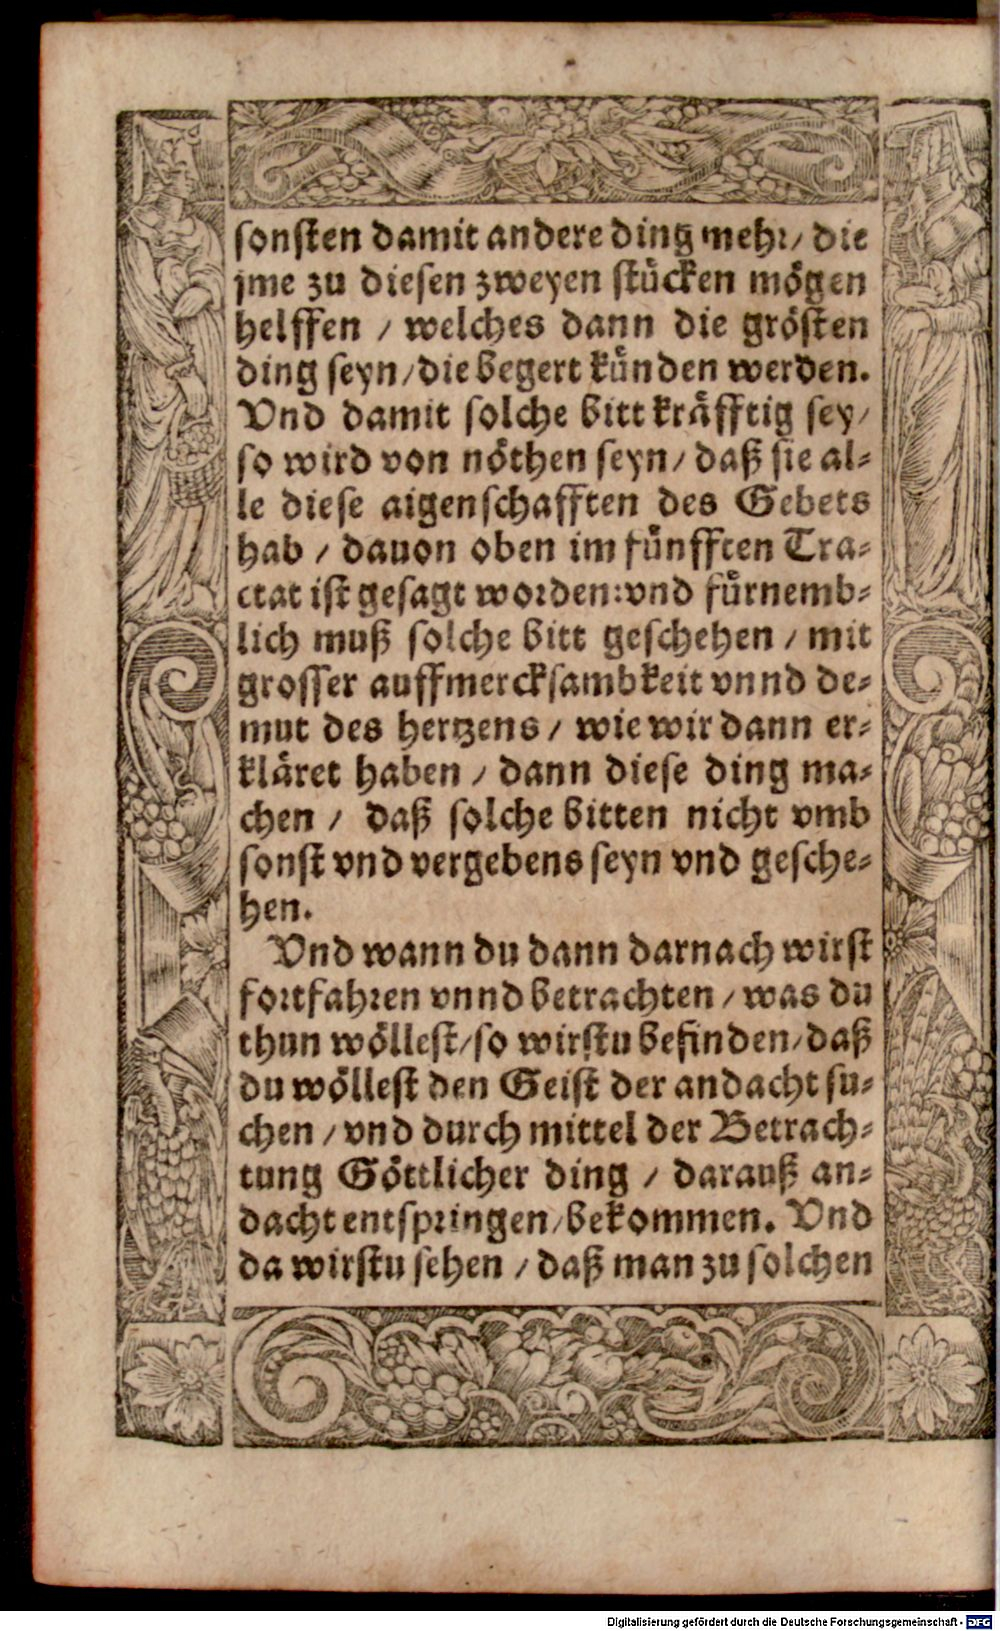 sonsten damit andere ding mehr / die
jme zu diesen zweyen stücken mögen
helffen / welches dann die grösten
ding seyn / die begert künden werden.
Vnd damit solche bitt kräfftig sey /
so wird von nöthen seyn / daß sie al-
le diese aigenschafften des Gebets
hab / dauon oben im fünfften Tra-
ctat ist gesagt worden: vnd fürnemb-
lich muß solche bitt geschehen / mit
grosser auffmercksambkeit vnnd de-
mut des hertzens / wie wir dann er-
kläret haben / dann diese ding ma-
chen / daß solche bitten nicht vmb
sonst vnd vergebens seyn vnd gesche-
hen.
Vnd wann du dann darnach wirst
fortfahren vnnd betrachten / was du
thun wöllest / so wirstu befinden / daß
du wöllest den Geist der andacht su-
chen / vnd durch mittel der Betrach-
tung Göttlicher ding / darauß an-
dacht entspringen / bekommen. Vnd
da wirstu sehen / daß man zu solchen
Digitalisierung gefördert durch die Deutsche Forschungsgemeinschaft - DFG